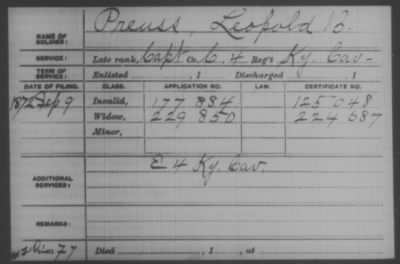 NAME OF SOLDIER: Preuss Leopold B.
SERVICE: Late rank, Capt Co. C, 4 Reg't Ky. Cav-
TERM OF SERVICE: Enlisted , 1 Discharged , 1
DATE OF FILING. CLASS. APPLICATION NO. LAW. CERTIFICATE NO.
1872 Invalid, 177 884 125 048
Widow, 229 850 224 687
Minor,
ADDITIONAL SERVICES: E 4 Ky. Cav.
REMARKS:
Died , 1 , at